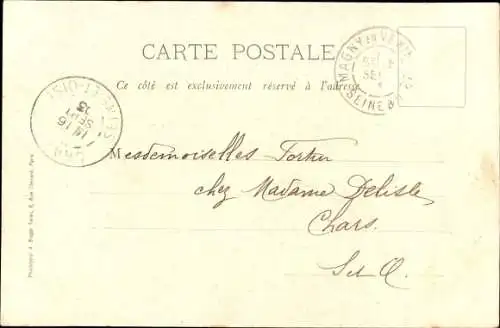 CARTE POSTALE
Ce côté est exclusivement réservé à l'adresse
MAGNY EN VEXIN
SEINE &
SEINE-ET-OISE
16
SEPT
03
Mesdemoiselles Fortier
chez Madame Delisle
Chars.
S. et O.